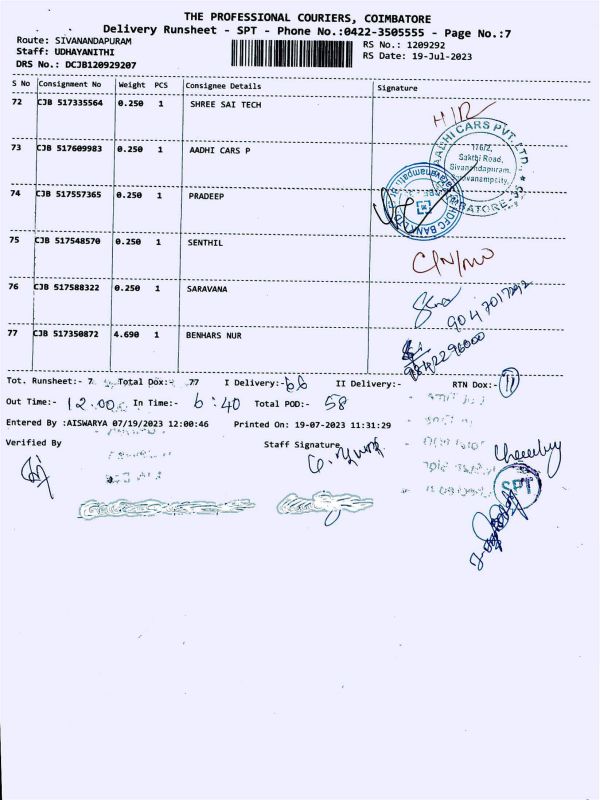 THE PROFESSIONAL COURIERS, COIMBATORE
Delivery Runsheet - SPT - Phone No.:0422-3505555 - Page No.:7
Route: SIVANANDAPURAM
RS No.: 1209292
Staff: UDHAYANITHI
RS Date: 19-Jul-2023
DRS No.: DCJB120929207
S No Consignment No Weight PCS Consignee Details Signature
72 CJB 517335564 0.250 1 SHREE SAI TECH
H/R
73 CJB 517609983 0.250 1 AADHI CARS P
AADHI CARS PVT. LTD.
176/2,
Sakthi Road,
Sivanandapuram,
74 CJB 517557365 0.250 1 PRADEEP
HDFC BANK
75 CJB 517548570 0.250 1 SENTHIL
76 CJB 517588322 0.250 1 SARAVANA
77 CJB 517350872 4.690 1 BENHARS NUR
Tot. Runsheet:- 7 Total Dox:- 77 I Delivery:- 66 II Delivery:- RTN Dox:- 11
Out Time:- 12.00 In Time:- 6:40 Total POD:- 58
Entered By :AISWARYA 07/19/2023 12:00:46 Printed On: 19-07-2023 11:31:29
Verified By Staff Signature
SPT